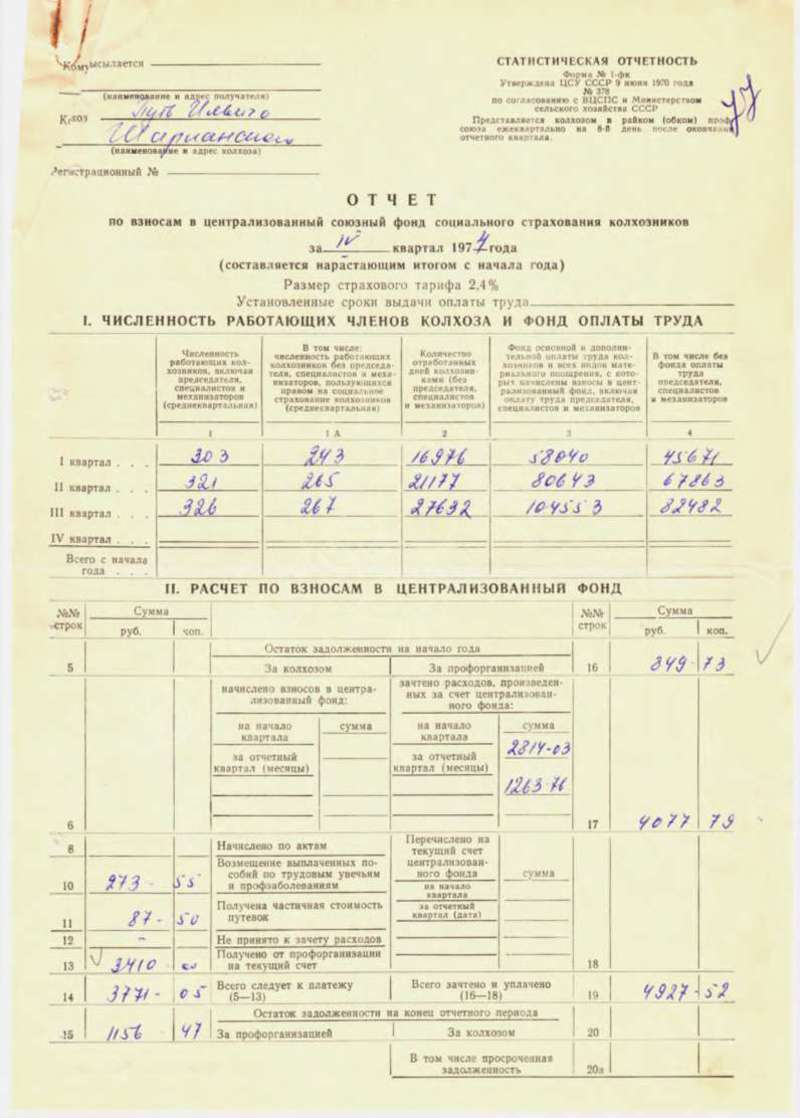 Кому высылается
СТАТИСТИЧЕСКАЯ ОТЧЕТНОСТЬ
Форма № 1-фк
Утверждена ЦСУ СССР 9 июня 1970 года
№ 378
по согласованию с ВЦСПС и Министерством
сельского хозяйства СССР
Представляется колхозом в райком (обком) проф
союза ежеквартально на 8-й день после окончания
отчетного квартала.
77
(наименование и адрес получателя)
Путь Ильича
(наименование и адрес колхоза)
Регистрационный №
ОТЧЕТ
по взносам в централизованный союзный фонд социального страхования колхозников
за IV квартал 1974 года
(составляется нарастающим итогом с начала года)
Размер страхового тарифа 2,4%
Установленные сроки выдачи оплаты труда
I. ЧИСЛЕННОСТЬ РАБОТАЮЩИХ ЧЛЕНОВ КОЛХОЗА И ФОНД ОПЛАТЫ ТРУДА
Численность
работающих кол-
хозников, включая
председателя,
специалистов и
механизаторов
(среднеквартальная)
В том числе:
численность работающих
колхозников без председа-
теля, специалистов и меха-
низаторов, пользующихся
правом на социальное
страхование колхозников
(среднеквартальная)
Количество
отработанных
дней колхозни-
ками (без
председателя,
специалистов
и механизаторов)
Фонд основной и дополни-
тельной оплаты труда кол-
хозников и всех видов мате-
риального поощрения, с кото-
рых начислены взносы в цент-
рализованный фонд, включая
оплату труда председателя,
специалистов и механизаторов
В том числе без
фонда оплаты
труда
председателя,
специалистов
и механизаторов
1 1 А 2 3 4
I квартал . . . 303 243 16976 58040 45671
II квартал . . . 321 265 21177 80643 67863
III квартал . . . 326 267 27632 104553 82482
IV квартал . . .
Всего с начала
года . . .
II. РАСЧЕТ ПО ВЗНОСАМ В ЦЕНТРАЛИЗОВАННЫЙ ФОНД
№№ строк
Сумма
руб. коп.
№№ строк
Сумма
руб. коп.
Остаток задолженности на начало года
5 За колхозом За профорганизацией 16 849 73
начислено взносов в центра-
лизованный фонд:
зачтено расходов, произведен-
ных за счет централизован-
ного фонда:
на начало
квартала
сумма
на начало
квартала
сумма
2814-03
за отчетный
квартал (месяцы)
за отчетный
квартал (месяцы)
1263 76
6 17 4077 79
8 Начислено по актам
Перечислено на
текущий счет
централизован-
ного фонда
сумма
10 273- 55 Возмещение выплаченных по-
собий по трудовым увечьям
и профзаболеваниям
на начало
квартала
за отчетный
квартал (дата)
11 87- 50 Получена частичная стоимость
путевок
12 - Не принято к зачету расходов
13 3410 Получено от профорганизации
на текущий счет
18
14 3771- 05 Всего следует к платежу
(5—13)
Всего зачтено и уплачено
(16—18)
19 4927-52
Остаток задолженности на конец отчетного периода
15 1156 47 За профорганизацией За колхозом 20
В том числе просроченная
задолженность
20а